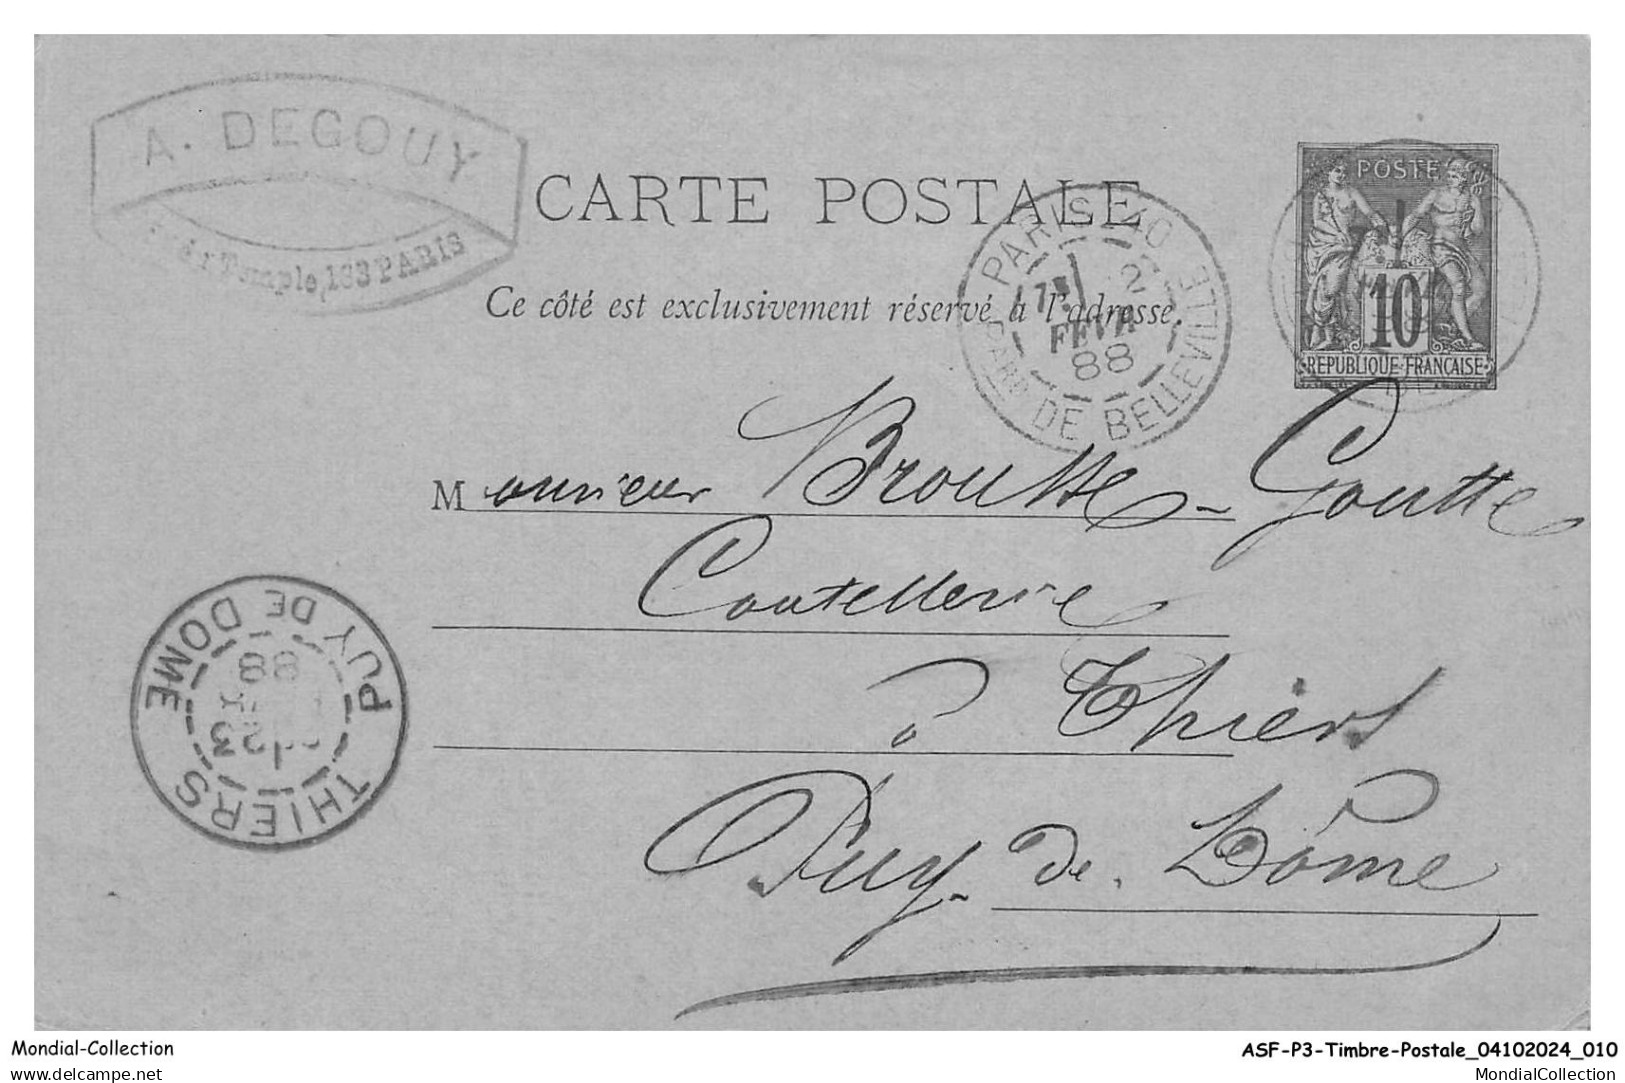 A. DEGOUY
Temple, 183 PARIS
CARTE POSTALE
Ce côté est exclusivement réservé à l'adresse.
POSTE
10
REPUBLIQUE FRANÇAISE
PARIS 40
FEVR
88
BARD DE BELLEVILLE
Monsieur Brousse-Goutte
Coutellerie
à Thiers
Puy-de-Dôme
THIERS
PUY DE DOME
23
88
Mondial-Collection
ASF-P3-Timbre-Postale_04102024_010
delcampe.net
MondialCollection